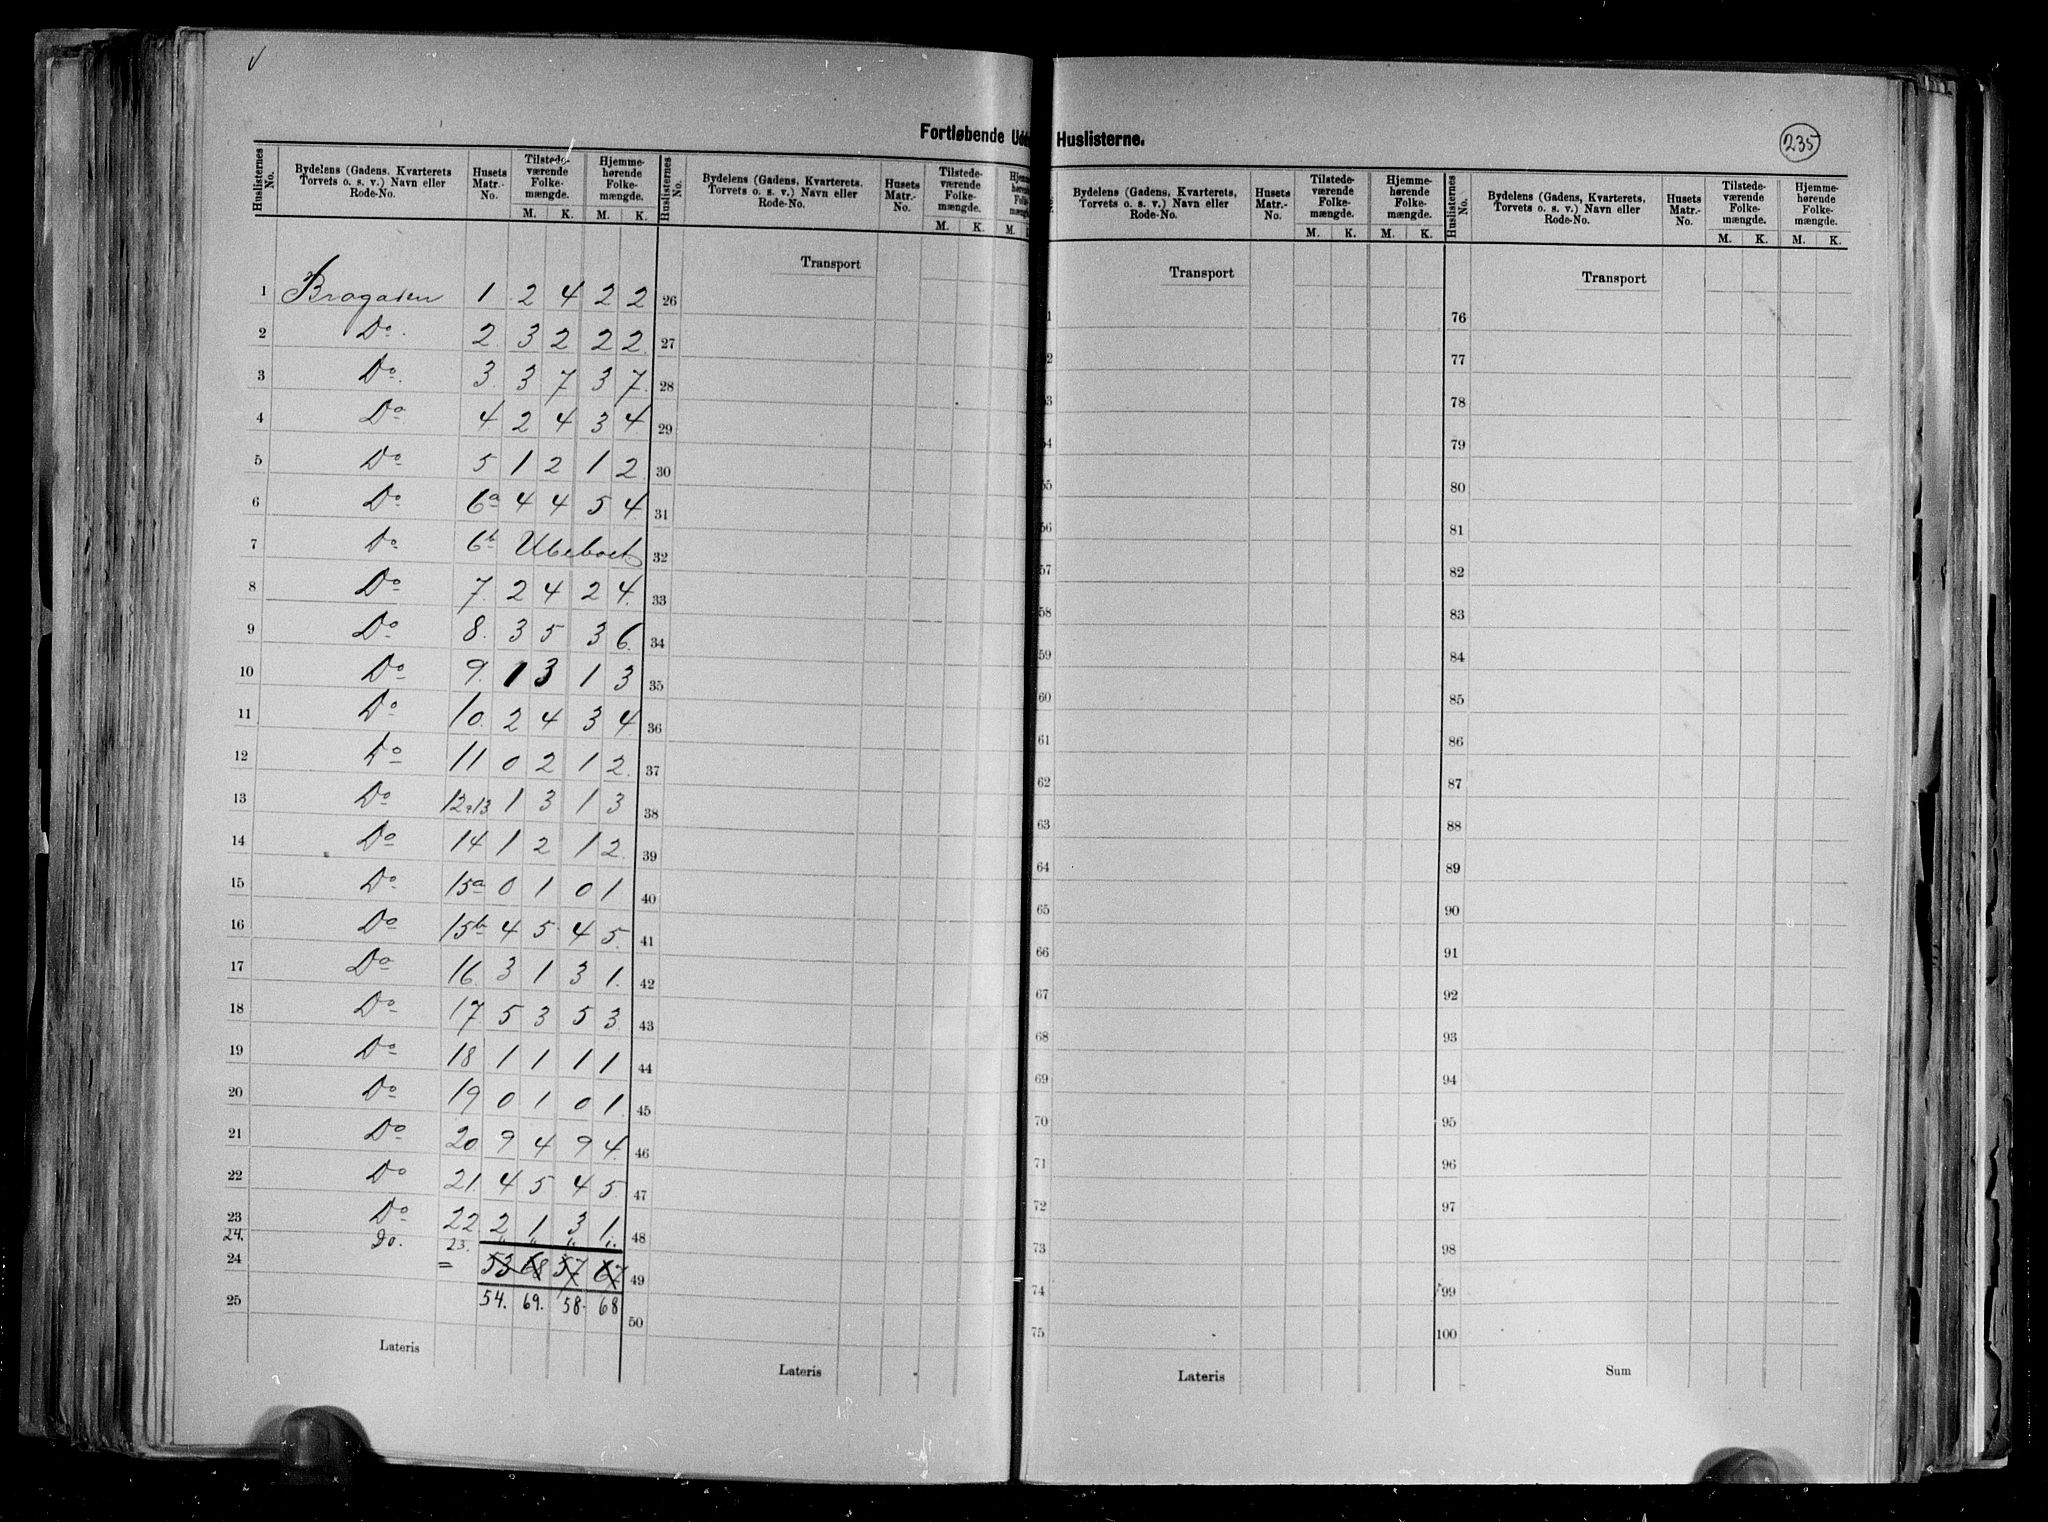 235
Fortløbende Ud Huslisterne.
Huslisternes No. Bydelens (Gadens, Kvarterets, Torvets o. s. v.) Navn eller Rode-No. Husets Matr.-No. Tilstedeværende Folkemængde. Hjemmehørende Folkemængde.
M. K. M. K.
1 Brogaden 1 2 4 2 2
2 Do. 2 3 2 2 2
3 Do. 3. 3 7 3 7.
4 Do 4 2 4 3 4
5 Do 5 1 2 1 2
6 Do 6a 4 4 5 4
7 Do 6b Ubeboet
8 Do 7. 2 4 2 4.
9 Do 8. 3 5 3 6.
10 Do 9. 1 3 1 3
11 Do 10. 2 4 3 4
12 Do 11 0 2 1 2.
13 Do 12&13 1 3 1 3
14 Do 14 1 2 1 2
15 Do 15a 0 1 0 1
16 Do 15b 4 5 4 5.
17 Do 16. 3 1 3 1.
18 Do 17 5 3 5 3
19 Do 18 1 1 1 1
20 Do 19 0 1 0 1.
21 Do 20. 9 4 9 4.
22 Do 21. 4 5 4 5.
23 Do 22 2 1 3 1.
24. Do. 23.
24 = 53 68 57 67
25 54. 69. 58. 68
Lateris
Huslisternes No. Bydelens (Gadens, Kvarterets, Torvets o. s. v.) Navn eller Rode-No. Husets Matr.-No. Tilstedeværende Folkemængde.
M. K. M.
Transport
26
27
28
29
30
31
32
33
34
35
36
37
38
39
40
41
42
43
44
45
46
47
48
49
50
Lateris
Bydelens (Gadens, Kvarterets, Torvets o. s. v.) Navn eller Rode-No. Husets Matr.-No. Tilstedeværende Folkemængde. Hjemmehørende Folkemængde.
M. K. M. K.
Transport
54
55
56
57
58
59
60
61
62
63
64
65
66
67
68
69
70
71
72
73
74
75
Lateris
Huslisternes No. Bydelens (Gadens, Kvarterets, Torvets o. s. v.) Navn eller Rode-No. Husets Matr.-No. Tilstedeværende Folkemængde. Hjemmehørende Folkemængde.
M. K. M. K.
Transport
76
77
78
79
80
81
82
83
84
85
86
87
88
89
90
91
92
93
94
95
96
97
98
99
100
Sum